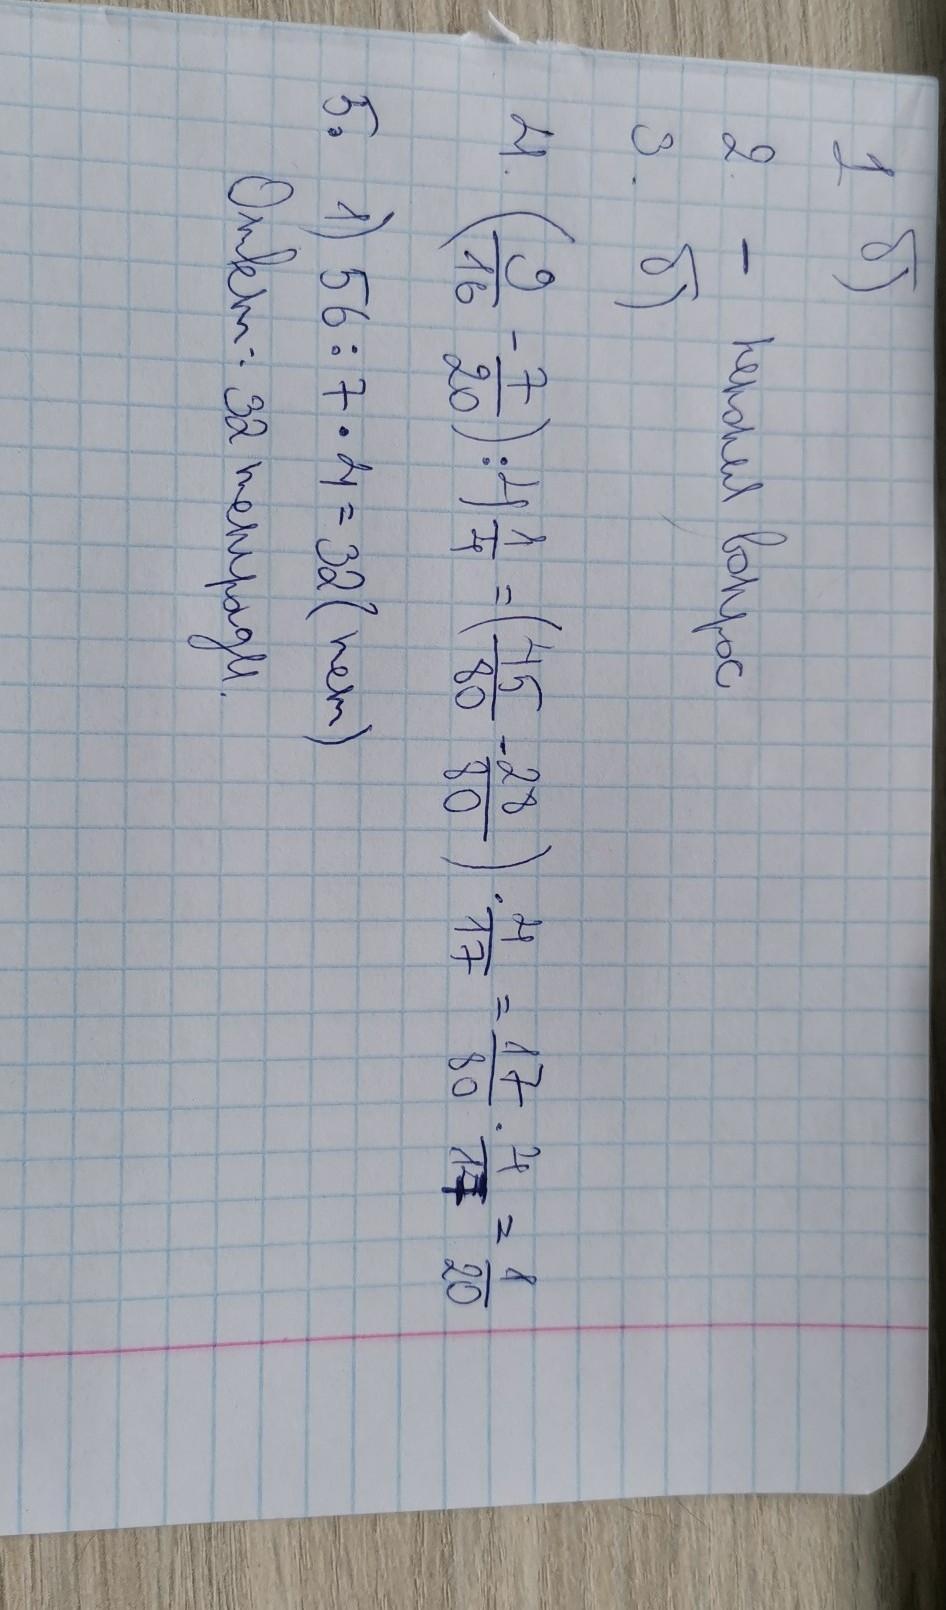 1 б)
2. - непонял вопрос
3. б)
4. (9/16 - 7/20) : 4 1/4 = (45/80 - 28/80) · 4/17 = 17/80 · 4/17 = 1/20
5. 1) 56 : 7 · 4 = 32 (тет)
Ответ: 32 тетради.